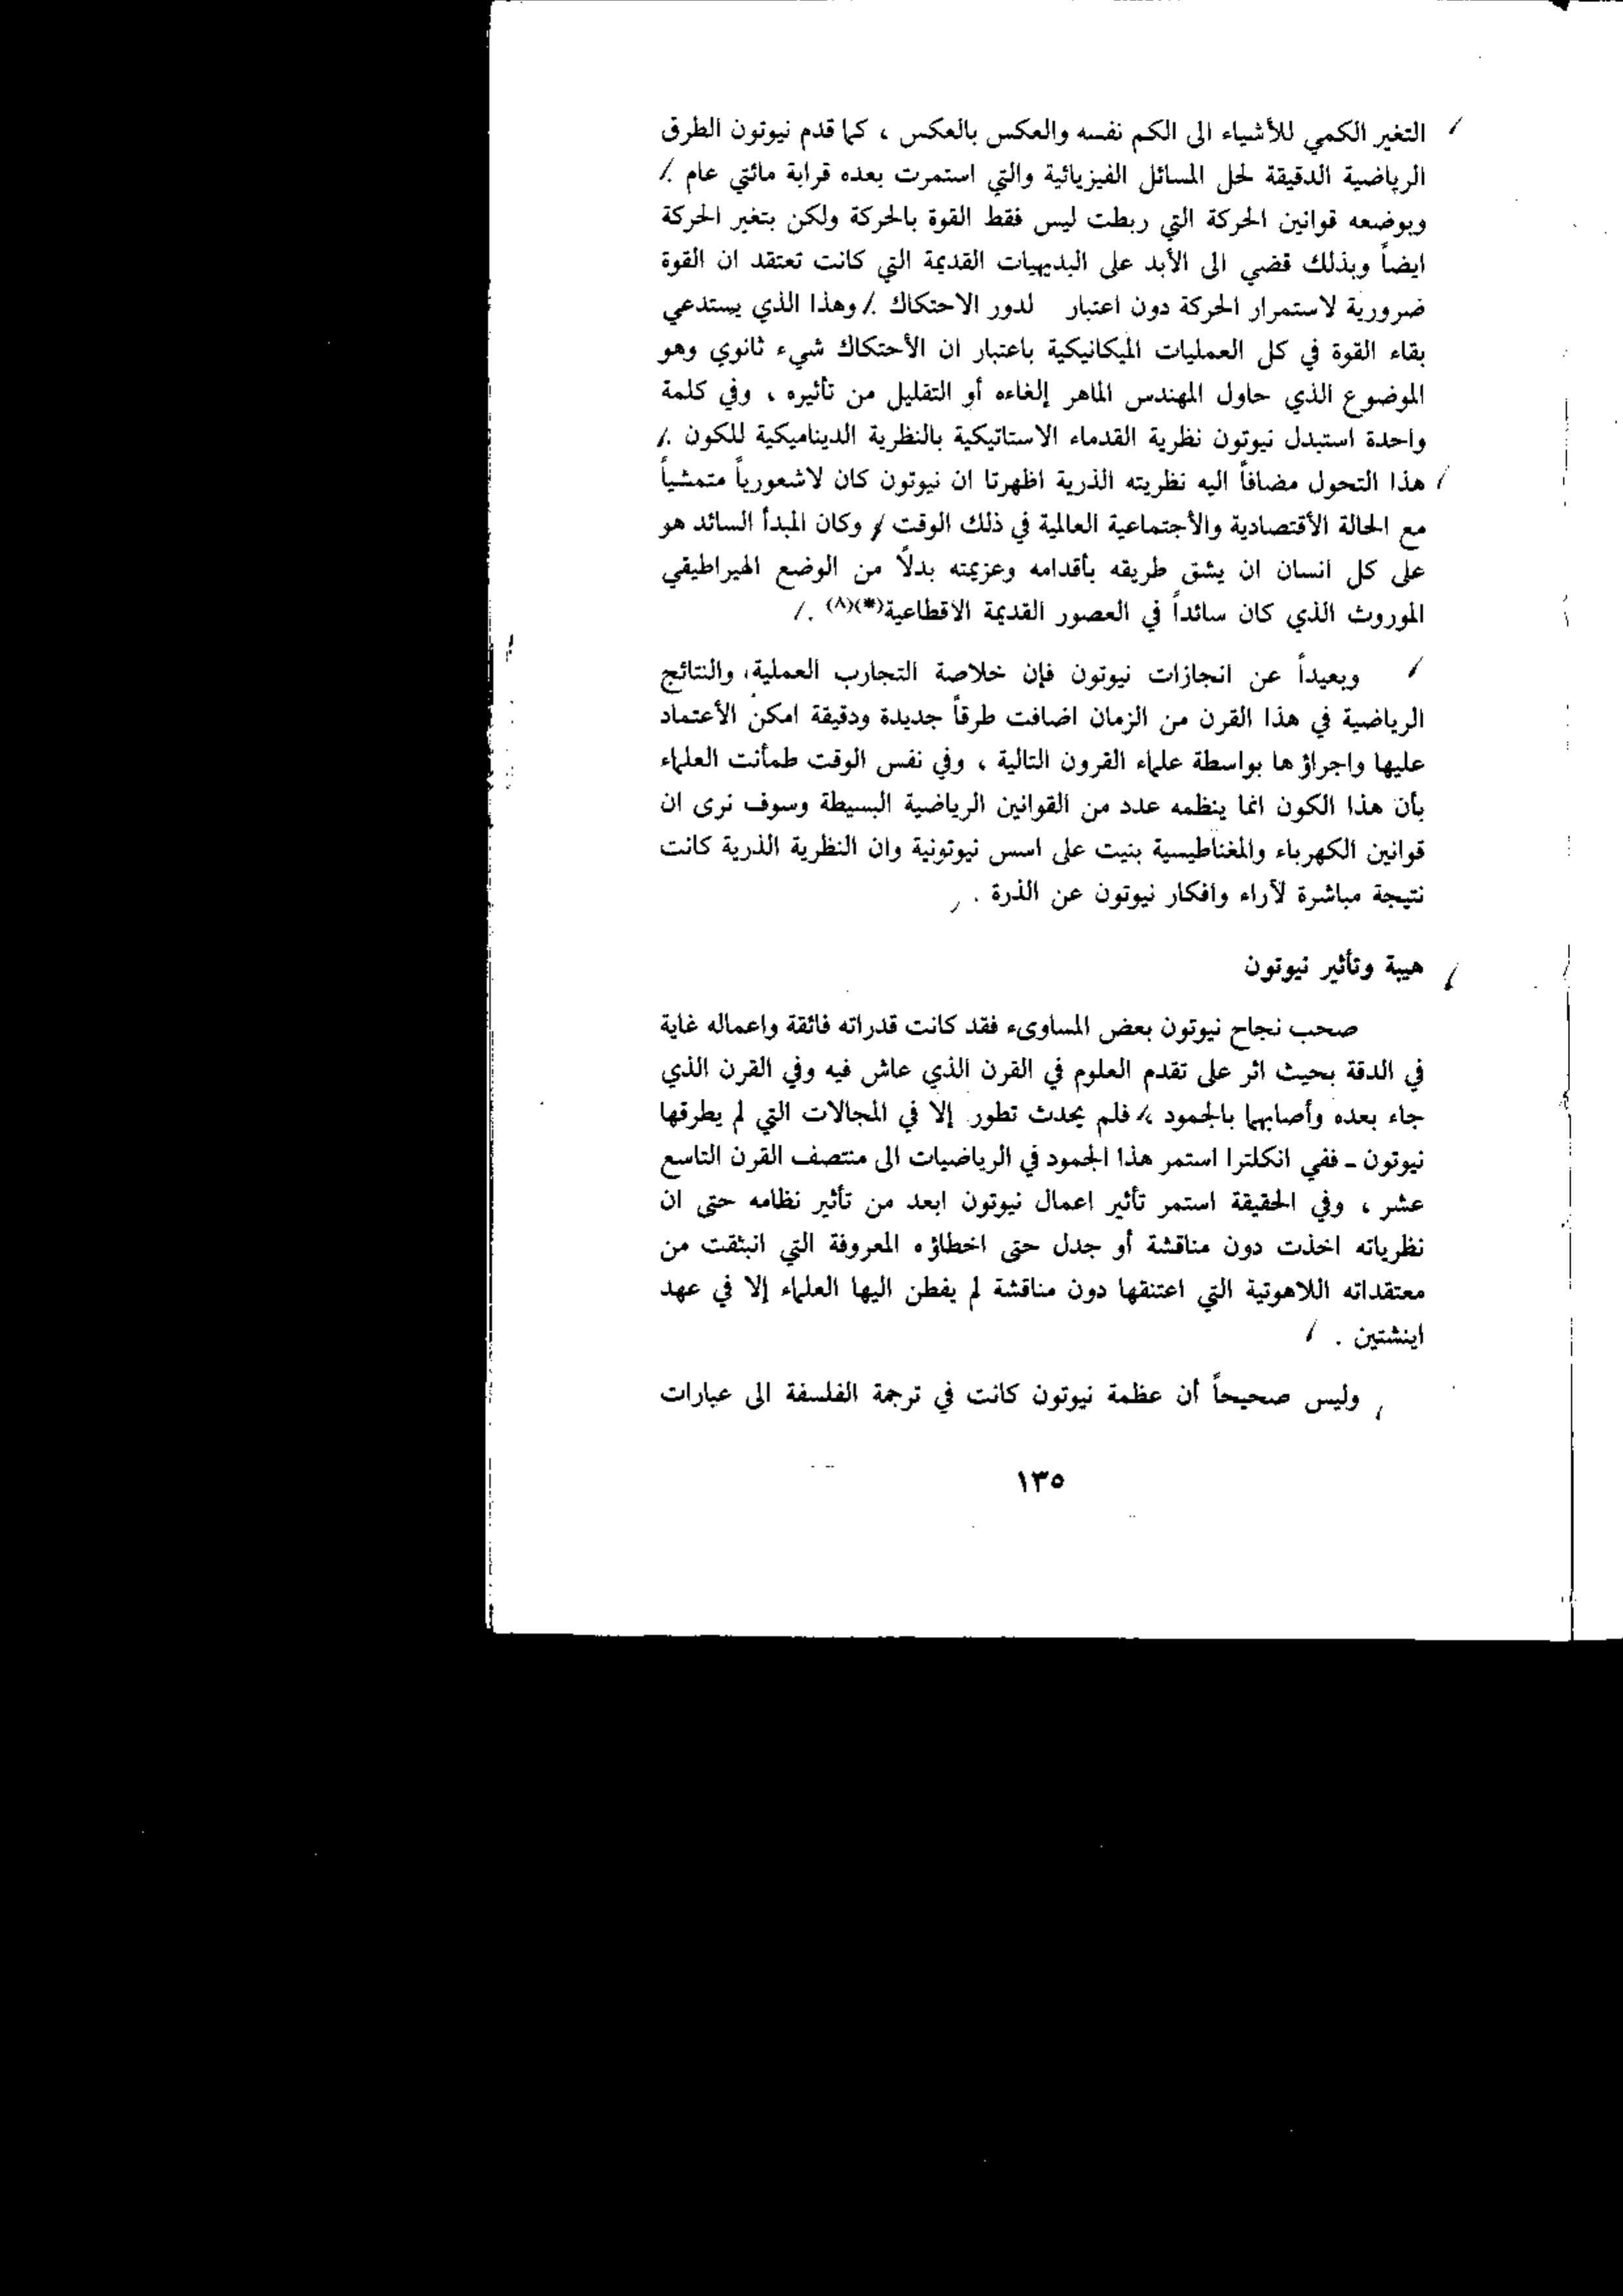 التغير الكمي للأشياء الى الكم نفسه والعكس بالعكس ، كما قدم نيوتون الطرق
الرياضية الدقيقة لحل المسائل الفيزيائية والتي استمرت بعده قرابة مائتي عام .
وبوضعه قوانين الحركة التي ربطت ليس فقط القوة بالحركة ولكن بتغير الحركة
ايضاً وبذلك قضي الى الأبد على البديهيات القديمة التي كانت تعتقد ان القوة
ضرورية لاستمرار الحركة دون اعتبار لدور الاحتكاك . وهذا الذي يستدعي
بقاء القوة في كل العمليات الميكانيكية باعتبار ان الأحتكاك شيء ثانوي وهو
الموضوع الذي حاول المهندس الماهر إلغاءه أو التقليل من تأثيره ، وفي كلمة
واحدة استبدل نيوتون نظرية القدماء الاستاتيكية بالنظرية الديناميكية للكون .
هذا التحول مضافاً اليه نظريته الذرية اظهرتا ان نيوتون كان لاشعورياً متمشياً
مع الحالة الأقتصادية والأجتماعية العالمية في ذلك الوقت ، وكان المبدأ السائد هو
على كل انسان ان يشق طريقه بأقدامه وعزيمته بدلاً من الوضع الهيراطيقي
الموروث الذي كان سائداً في العصور القديمة الاقطاعية(*)(٨) .
وبعيداً عن انجازات نيوتون فإن خلاصة التجارب العملية، والنتائج
الرياضية في هذا القرن من الزمان اضافت طرقاً جديدة ودقيقة امكن الأعتماد
عليها واجراؤها بواسطة علماء القرون التالية ، وفي نفس الوقت طمأنت العلماء
بأن هذا الكون انما ينظمه عدد من القوانين الرياضية البسيطة وسوف نرى ان
قوانين الكهرباء والمغناطيسية بنيت على اسس نيوتونية وان النظرية الذرية كانت
نتيجة مباشرة لآراء وافكار نيوتون عن الذرة .
هيبة وتأثير نيوتون
صحب نجاح نيوتون بعض المساوىء فقد كانت قدراته فائقة واعماله غاية
في الدقة بحيث اثر على تقدم العلوم في القرن الذي عاش فيه وفي القرن الذي
جاء بعده وأصابهما بالجمود ، فلم يحدث تطور إلا في المجالات التي لم يطرقها
نيوتون ـ ففي انكلترا استمر هذا الجمود في الرياضيات الى منتصف القرن التاسع
عشر ، وفي الحقيقة استمر تأثير اعمال نيوتون ابعد من تأثير نظامه حتى ان
نظرياته اخذت دون مناقشة أو جدل حتى اخطاؤه المعروفة التي انبثقت من
معتقداته اللاهوتية التي اعتنقها دون مناقشة لم يفطن اليها العلماء إلا في عهد
اينشتين .
وليس صحيحاً أن عظمة نيوتون كانت في ترجمة الفلسفة الى عبارات
١٣٥